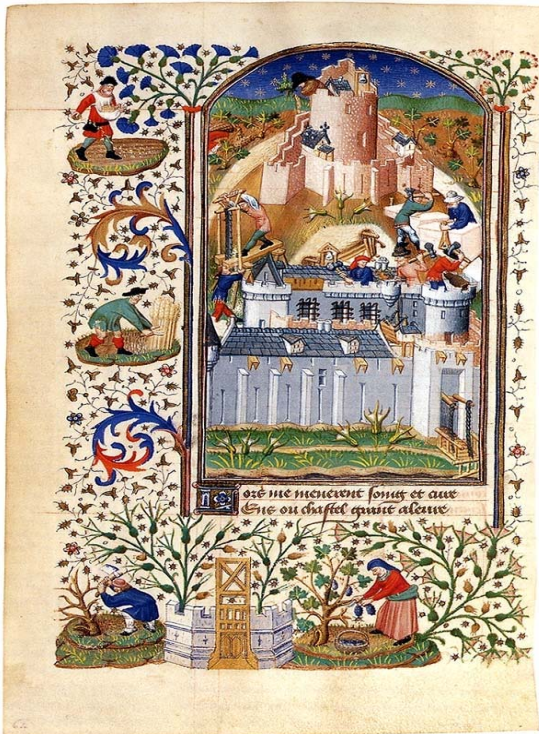 Lors me menerent soing et cure
Ens ou chastel grant aleure